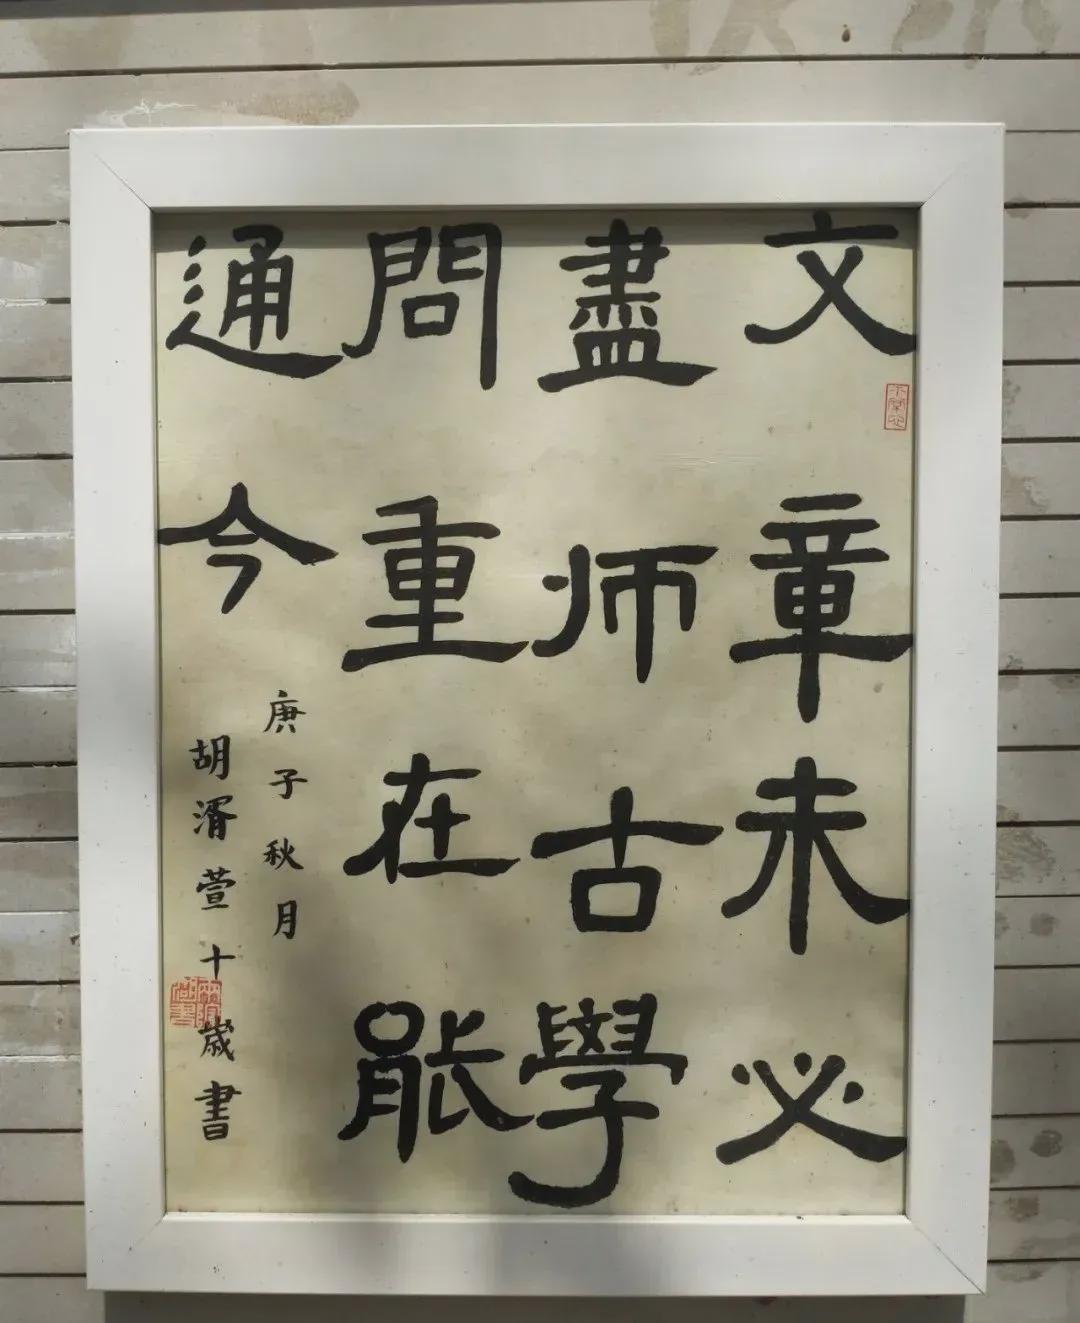 文章未必
盡师古學
問重在能
通今
庚子秋月
胡湑萱十歲書